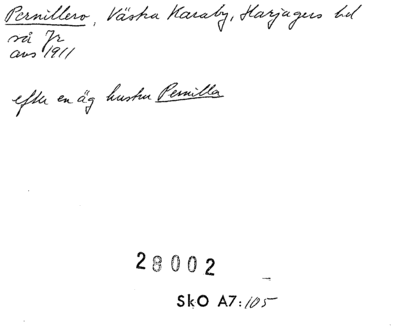 Pernillero, Västra Karaby, Harjagers hd
så Jr
avs 1911
efter en äg hustru Pernilla
28002
SkO A7:105